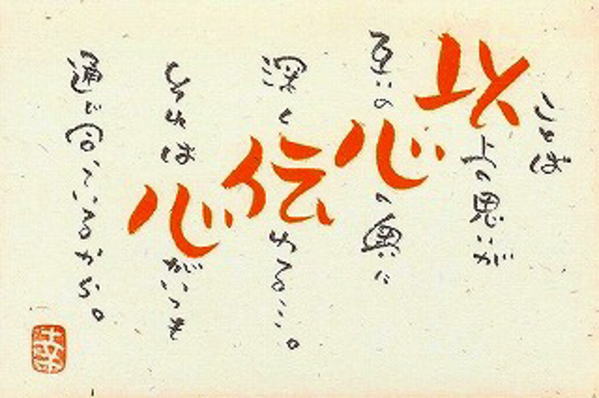 ことば
以上の思いが
互いの心の奥に
深く伝わる…。
それは心がいつも
通じ合っているから。
幸